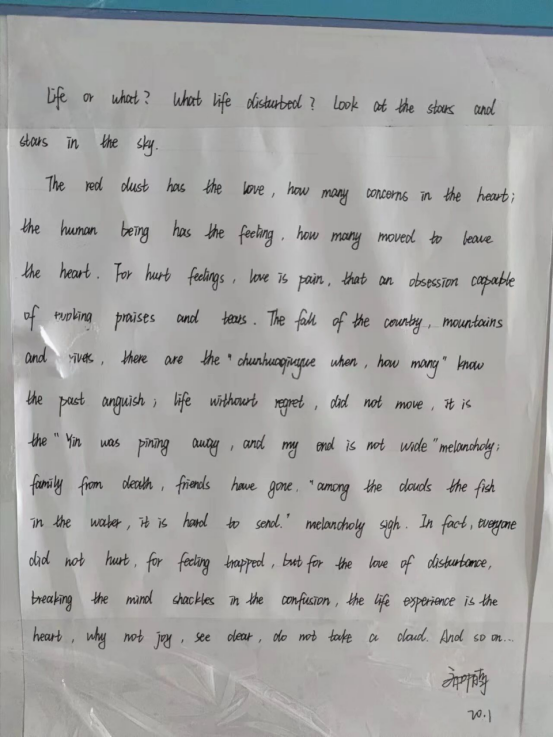 Life or what? What life disturbed? Look at the stars and
stars in the sky.
The red dust has the love, how many concerns in the heart;
the human being has the feeling, how many moved to leave
the heart. For hurt feelings, love is pain, that an obsession capable
of evoking praises and tears. The fall of the country, mountains
and rivers, there are the "chunhuaqiuyue when, how many" know
the past anguish; life withourt regret, did not move, it is
the "Yin was pining away, and my end is not wide" melancholy;
family from death, friends have gone, "among the clouds the fish
in the water, it is hard to send." melancholy sigh. In fact, everyone
did not hurt, for feeling trapped, but for the love of disturbance,
breaking the mind shackles in the confusion, the life experience is the
heart, why not joy, see clear, do not take a cloud. And so on...
20.1